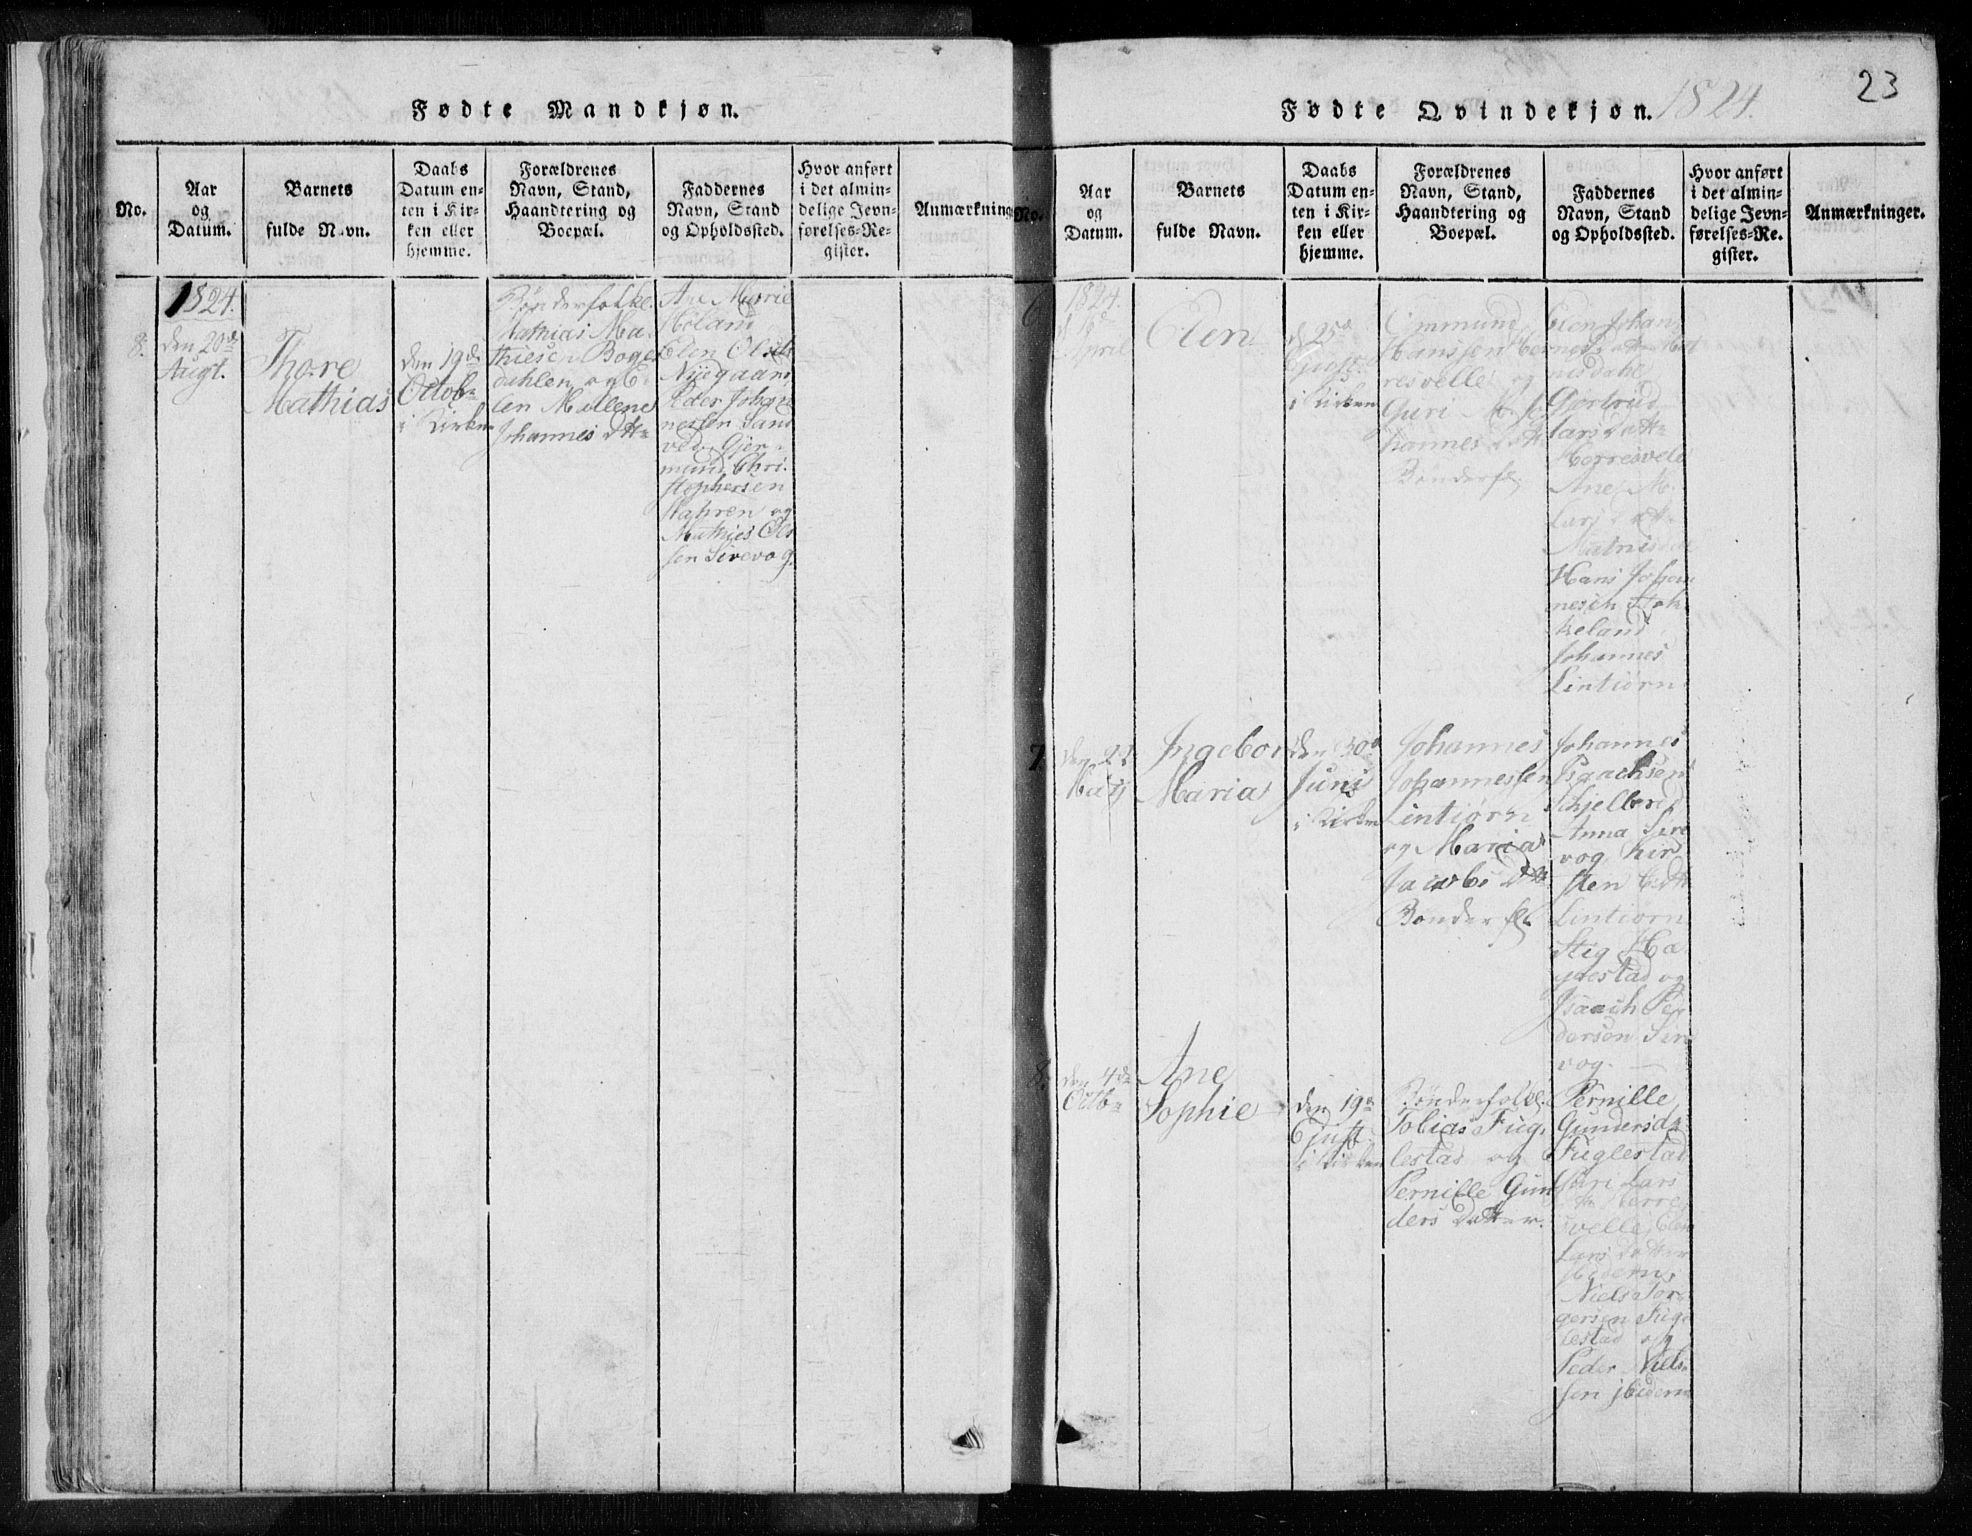 Fødte Mandkjøn.
No.
Aar
og
Datum.
Barnets
fulde Navn.
Daabs
Datum en-
ten i Kir-
ken eller
hjemme.
Forældrenes
Navn, Stand,
Haandtering og
Boepæl.
Faddernes
Navn, Stand
og Opholdssted.
Hvor anført
i det almin-
delige Jevn-
førelses-Re-
gister.
Anmærkninge
8.
1824.
den 20de
Augt.
Thore
Mathias
den 19de
Octobr
i Kirken
Bønderfolk.
Mathias Ma-
thiesen Boge
dahlen og E-
len Mallene
Johannes dttr
Ane Marie
Høland
Elen Ols
Nyegaard
Peder Johan
nessen Sand
ved Gjer-
mund Chri-
stophersen
og
Mathies Ol
sen Sirevog.
Fødte Qvindekjøn. 1824.
23
No.
Aar
og
Datum.
Barnets
fulde Navn.
Daabs
Datum en-
ten i Kir-
ken eller
hjemme.
Forældrenes
Navn, Stand,
Haandtering og
Boepæl.
Faddernes
Navn, Stand
og Opholdssted.
Hvor anført
i det almin-
delige Jevn-
førelses-Re-
gister.
Anmærkninger.
6
1824.
April
Elen
d 25de
i Kirken
Ommund
Hanssen
resvelle og
Guri
hannes dattr
Bønderfl.
Elen Johan
Gjertrud
Lars dattr
Herresvele
Ane M.
Lars dattr
Hans Johan
nesen Stok-
keland
Johannes
Lintiørn
7
den 22
May
Ingebor
Maria
den 30d
Juni
i Kirken
Johannes
Johannessen
Lintiørn
og Maria
Jacobs Dttr
Bønderfl.
Johannes
Isaachsen
Schjelbred
Anna Sire
vog Kir
sten
Lintiørn
Stig Ha
vestad og
Isaach Pe-
dersen Sire
vog.
8.
den 4de
Octbr
Ane
Sophie
den 19d
Ejusd.
i Kirken
Bønderfolk.
Tobias Fug-
lestad og
Pernille Gun
ders Datter.
Pernille
Gundersdr
Fuglestad
Guri Lars
dtr Herre
velle Elen
Lars datter
Niels Tor-
gersen Fug-
lestad og
Peder Niels-
sen